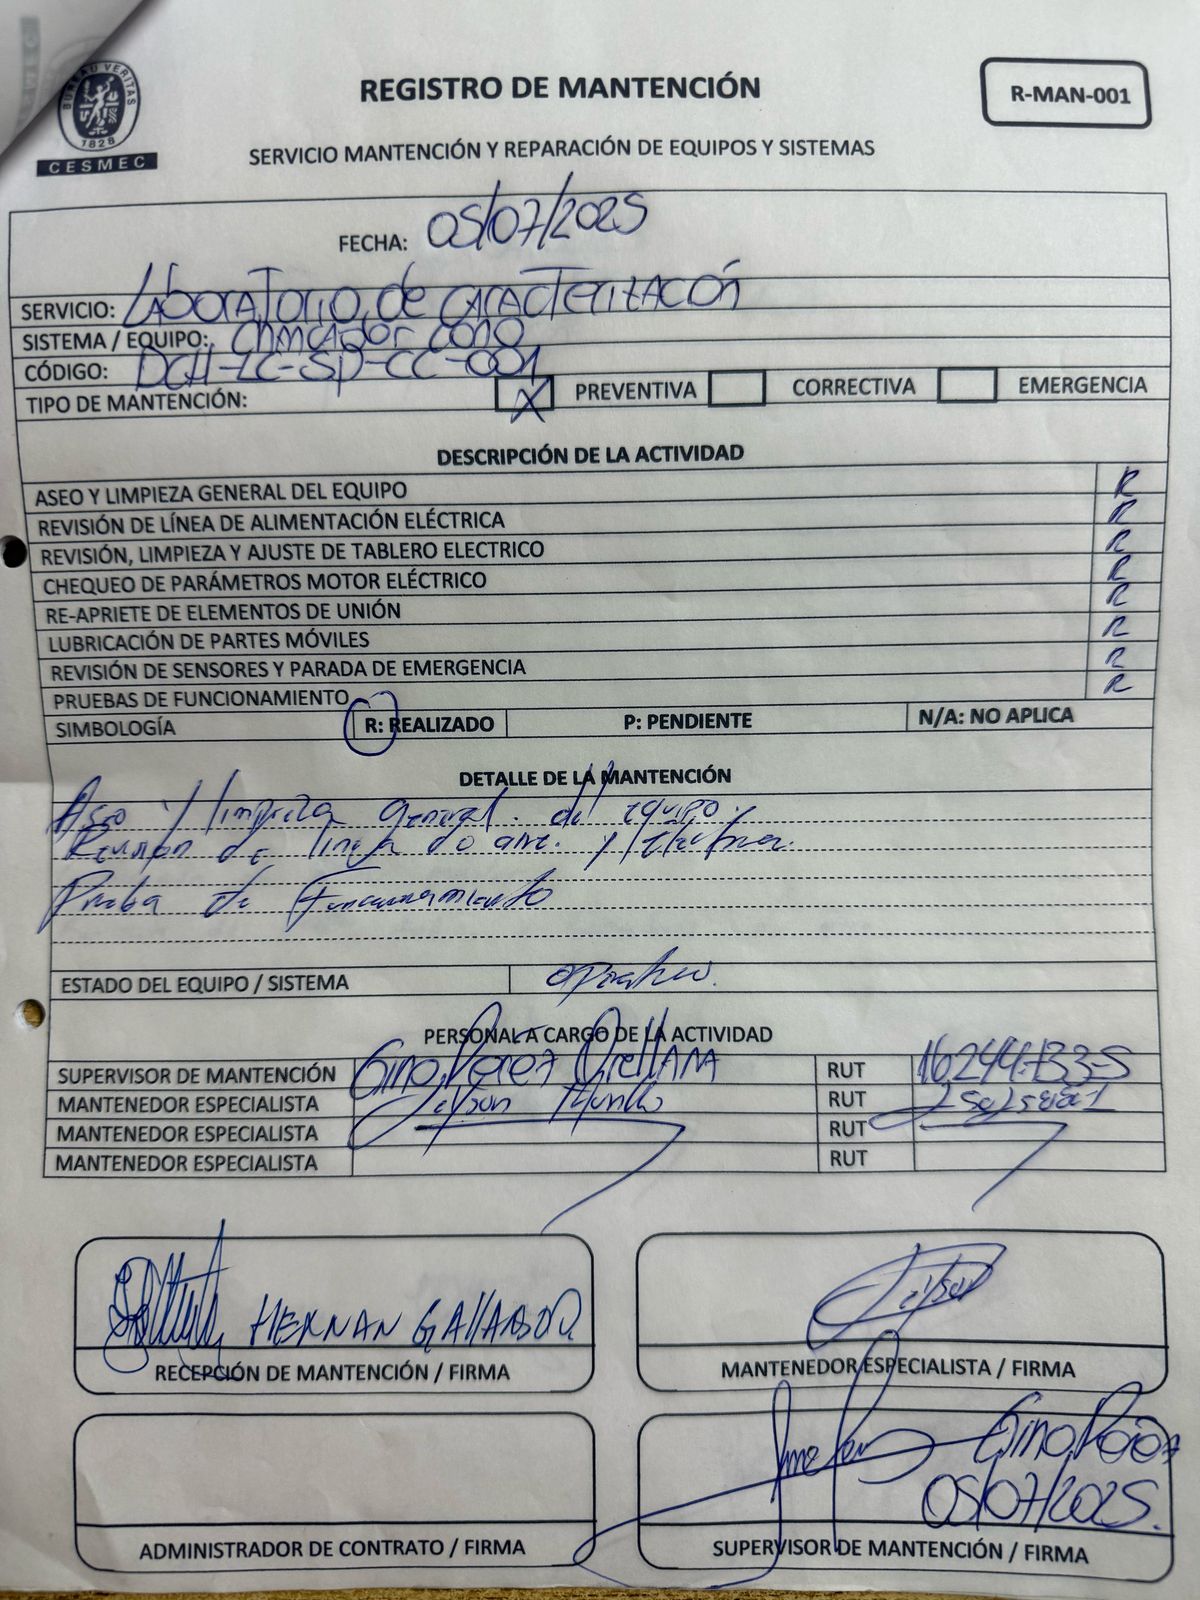 BUREAU VERITAS
1828
CESMEC
REGISTRO DE MANTENCIÓN
R-MAN-001
SERVICIO MANTENCIÓN Y REPARACIÓN DE EQUIPOS Y SISTEMAS
FECHA: 05/07/2025
SERVICIO: Laboratorio de caracterización
SISTEMA / EQUIPO: Chancador cono
CÓDIGO: DCH-LC-SP-CC-001
TIPO DE MANTENCIÓN: X PREVENTIVA CORRECTIVA EMERGENCIA
DESCRIPCIÓN DE LA ACTIVIDAD
ASEO Y LIMPIEZA GENERAL DEL EQUIPO R
REVISIÓN DE LÍNEA DE ALIMENTACIÓN ELÉCTRICA R
REVISIÓN, LIMPIEZA Y AJUSTE DE TABLERO ELECTRICO R
CHEQUEO DE PARÁMETROS MOTOR ELÉCTRICO R
RE-APRIETE DE ELEMENTOS DE UNIÓN R
LUBRICACIÓN DE PARTES MÓVILES R
REVISIÓN DE SENSORES Y PARADA DE EMERGENCIA R
PRUEBAS DE FUNCIONAMIENTO R
SIMBOLOGÍA R: REALIZADO P: PENDIENTE N/A: NO APLICA
DETALLE DE LA MANTENCIÓN
Aseo y limpieza general del equipo
Revision de linea de aire y electrica.
Prueba de Funcionamiento
ESTADO DEL EQUIPO / SISTEMA operativo.
PERSONAL A CARGO DE LA ACTIVIDAD
SUPERVISOR DE MANTENCIÓN Gino Perez Orellana RUT 16244733-5
MANTENEDOR ESPECIALISTA RUT
MANTENEDOR ESPECIALISTA RUT
MANTENEDOR ESPECIALISTA RUT
HERNAN GALLARDO
RECEPCIÓN DE MANTENCIÓN / FIRMA
MANTENEDOR ESPECIALISTA / FIRMA
Gino Perez
05/07/2025.
ADMINISTRADOR DE CONTRATO / FIRMA
SUPERVISOR DE MANTENCIÓN / FIRMA